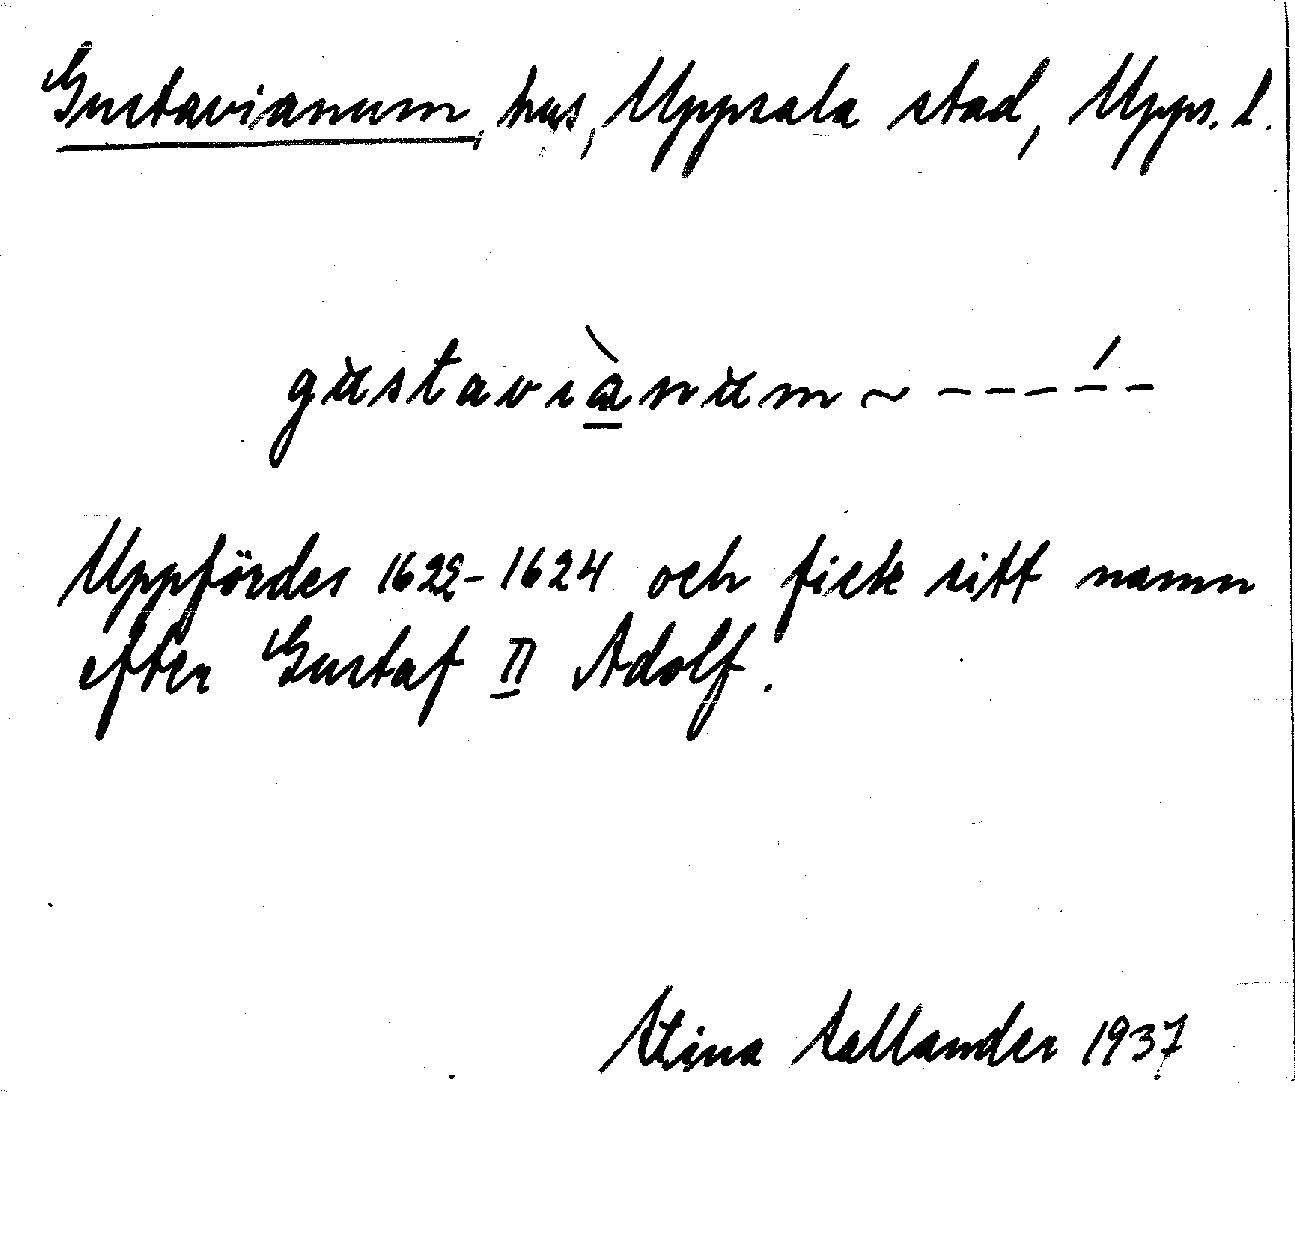 Gustavianum, hus, Uppsala stad, Upps. l.
gustavianum ~ - - - - -
Uppfördes 1622-1624 och fick sitt namn
efter Gustaf II Adolf.
Stina Sallander 1937